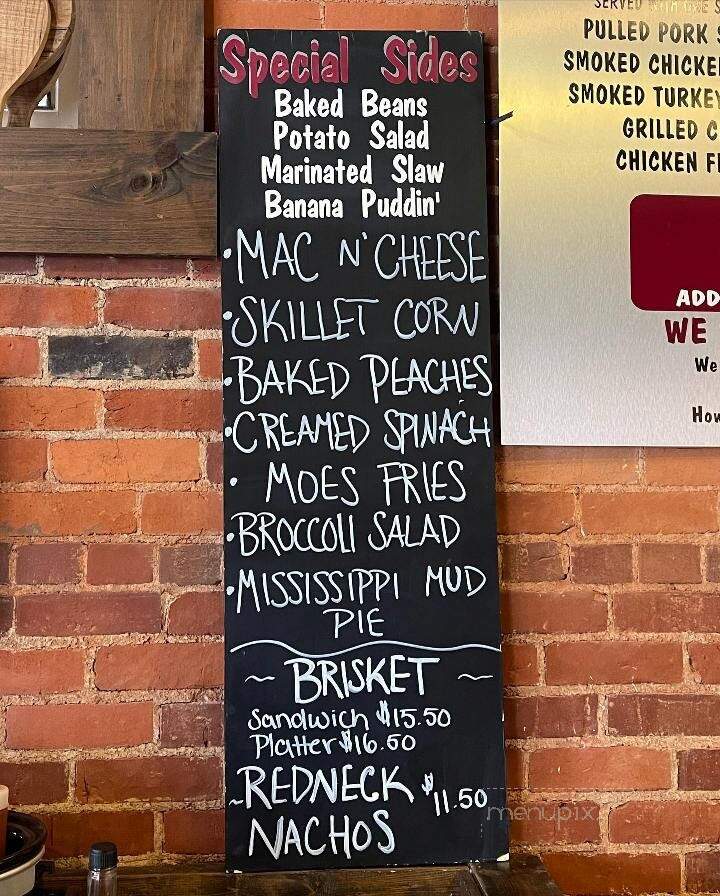 Special Sides
Baked Beans
Potato Salad
Marinated Slaw
Banana Puddin'
•MAC N' CHEESE
•SKILLET CORN
•BAKED PEACHES
•CREAMED SPINACH
• MOES FRIES
•BROCCOLI SALAD
•MISSISSIPPI MUD
PIE
~ BRISKET ~
Sandwich $15.50
Platter $16.50
~REDNECK $11.50
NACHOS
SERVED WITH ONE
PULLED PORK
SMOKED CHICKE
SMOKED TURKEY
GRILLED C
CHICKEN F
ADD
WE
We
How
menupix